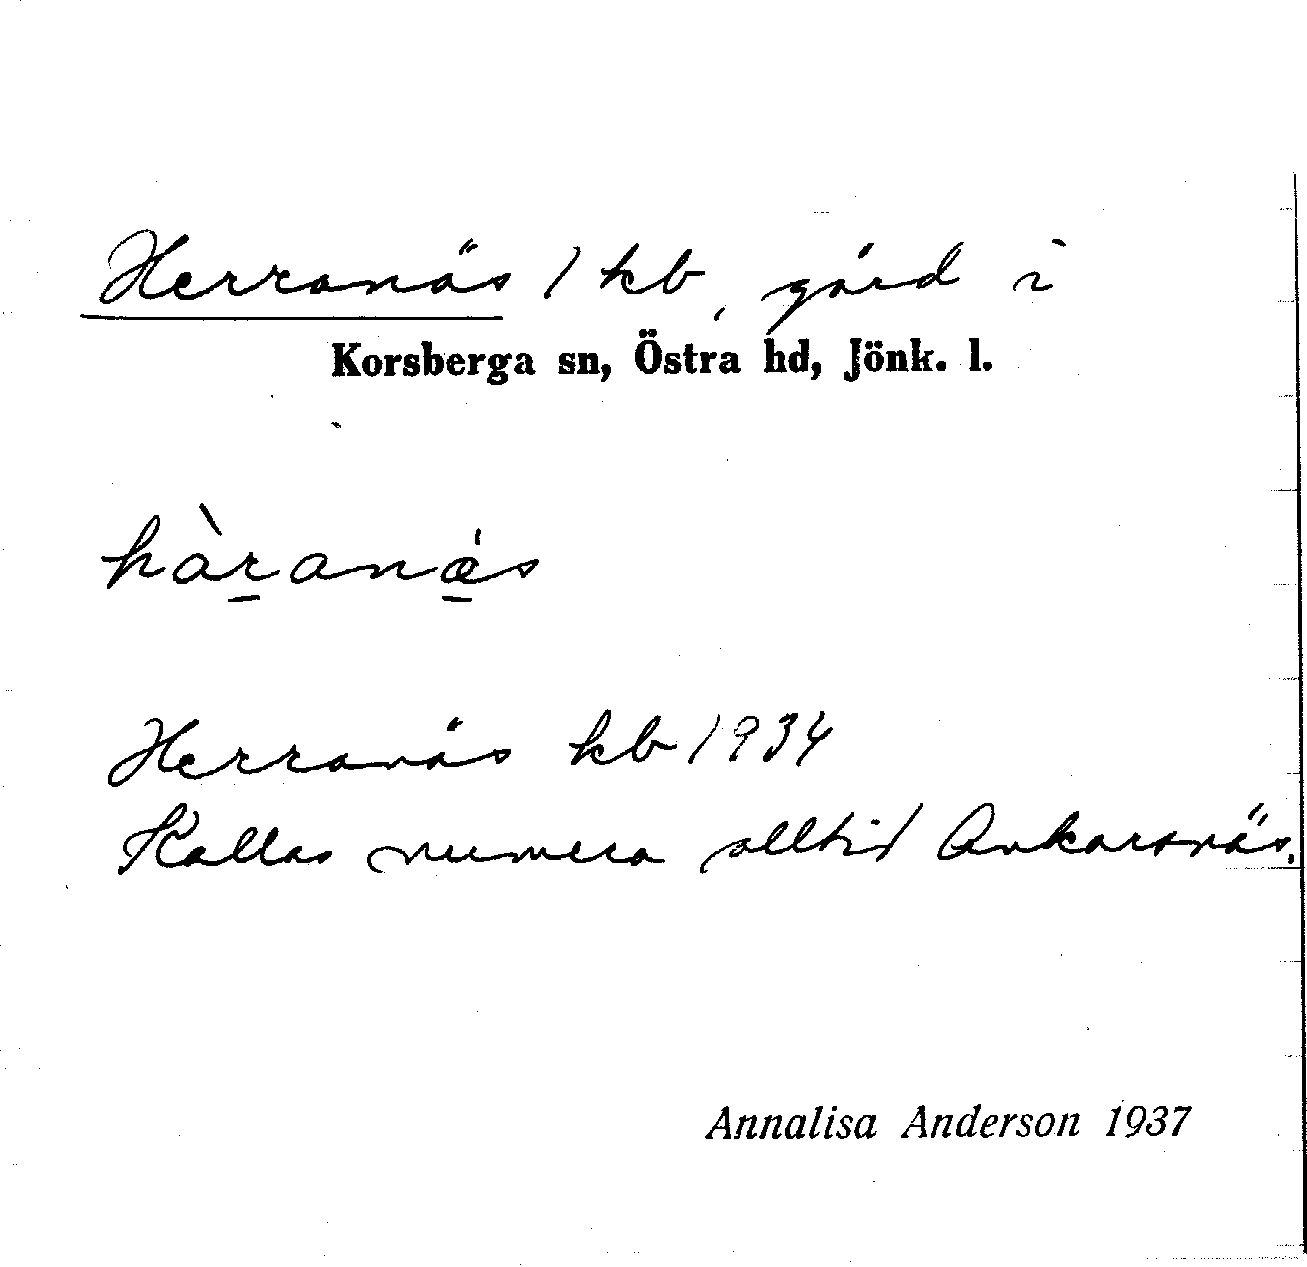 Herranäs / kb, gård i
Korsberga sn, Östra hd, Jönk. l.
hàranæ̀s
Herranäs kb 1934
Kallas numera alltid Ankarsnäs.
Annalisa Anderson 1937